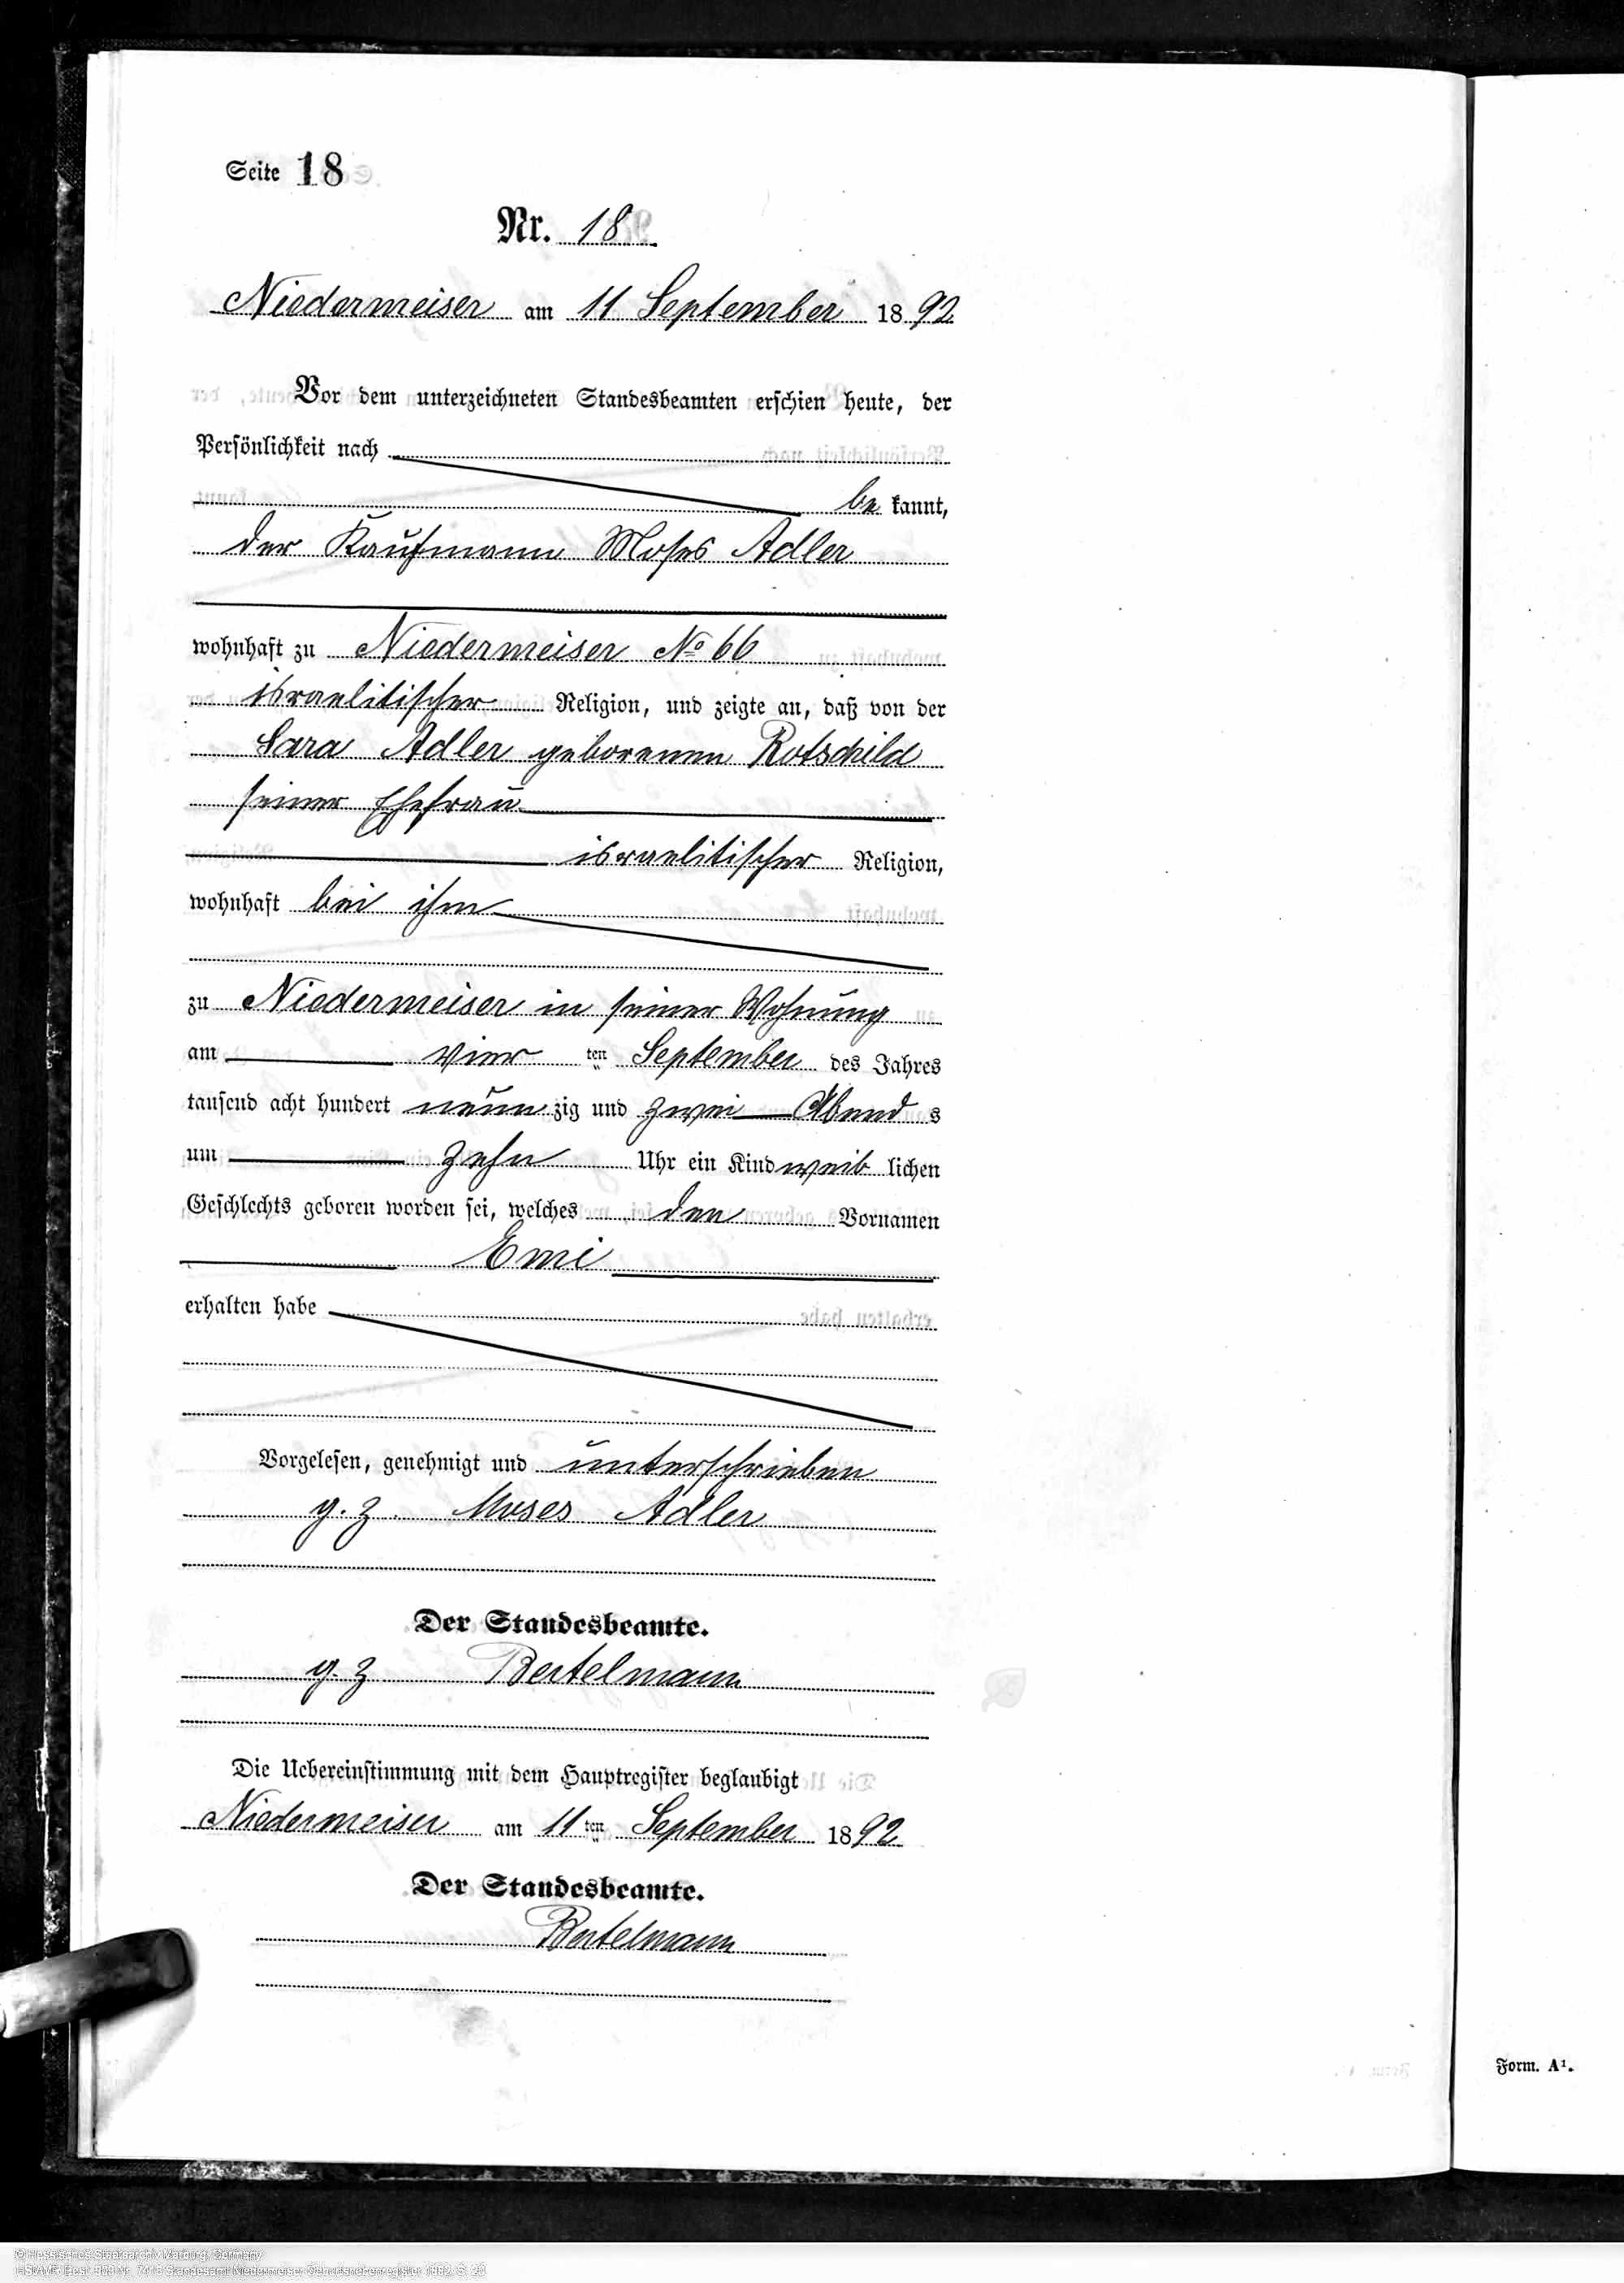 Seite 18
Nr. 18
Niedermeiser am 11 September 1892
Vor dem unterzeichneten Standesbeamten erschien heute, der
Persönlichkeit nach
be kannt,
der Kaufmann Moses Adler
wohnhaft zu Niedermeiser No 66
israelitischer Religion, und zeigte an, daß von der
Sara Adler geborenen Rotschild
seiner Ehefrau
israelitischer Religion,
wohnhaft bei ihm
zu Niedermeiser in seiner Wohnung
am vier ten September des Jahres
tausend acht hundert neun zig und zwei Abend s
um zehn Uhr ein Kind weib lichen
Geschlechts geboren worden sei, welches den Vornamen
Emi
erhalten habe
Vorgelesen, genehmigt und unterschrieben
g. z. Moses Adler
Der Standesbeamte.
g. z Bertelmann
Die Uebereinstimmung mit dem Hauptregister beglaubigt
Niedermeiser am 11 ten September 1892
Der Standesbeamte.
Bertelmann
Form. A¹.
© Hessisches Staatsarchiv Marburg, Germany
Standesamt Niedermeiser Geburtsnebenregister 1892, S. 20